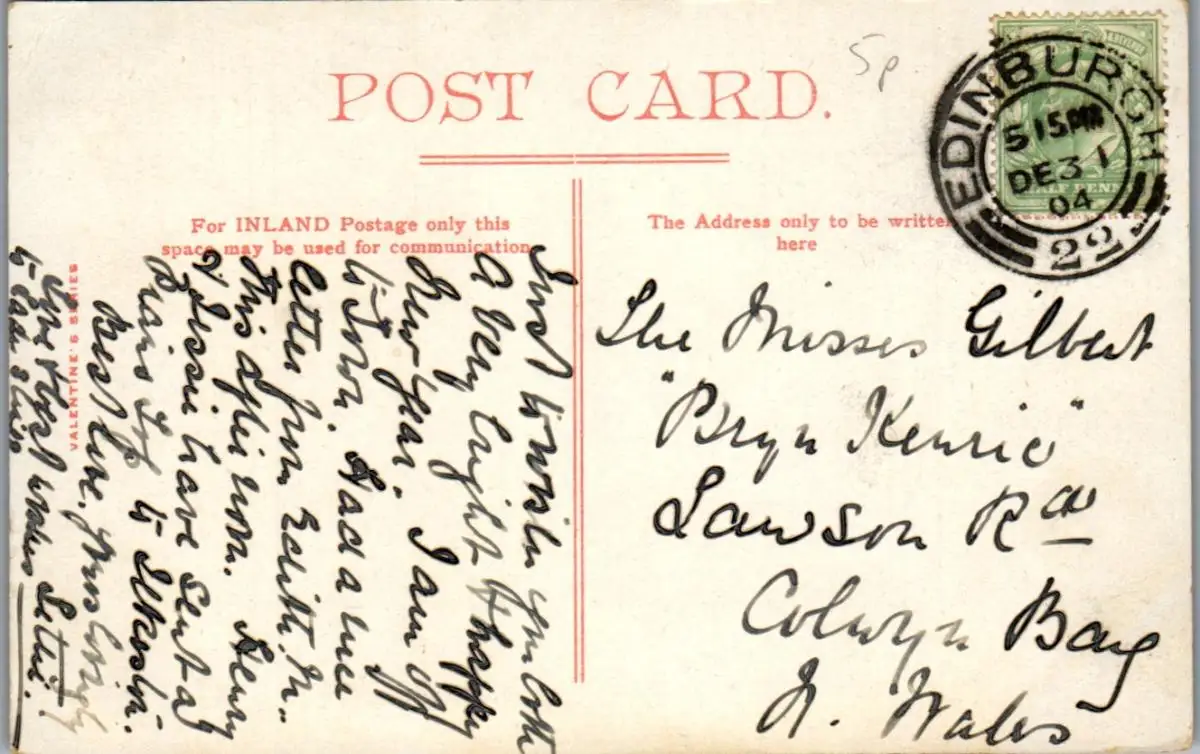 POST CARD.
5p
EDINBURGH
5 15PM
DE 31
04
22
HALF PENNY
For INLAND Postage only this
space may be used for communication
The Address only to be written
here
VALENTINE'S SERIES
Just to wish you both
a very bright & happy
New Year. I am off
to Town. Had a nice
letter from Edith M.
this afternoon. Henry
& Jessie have sent a
to
Best love. Yours lovingly
Love & best wishes Lettie.
to
The Misses Gilbert
"Bryn Kenric"
Lawson Rd
Colwyn Bay
N. Wales